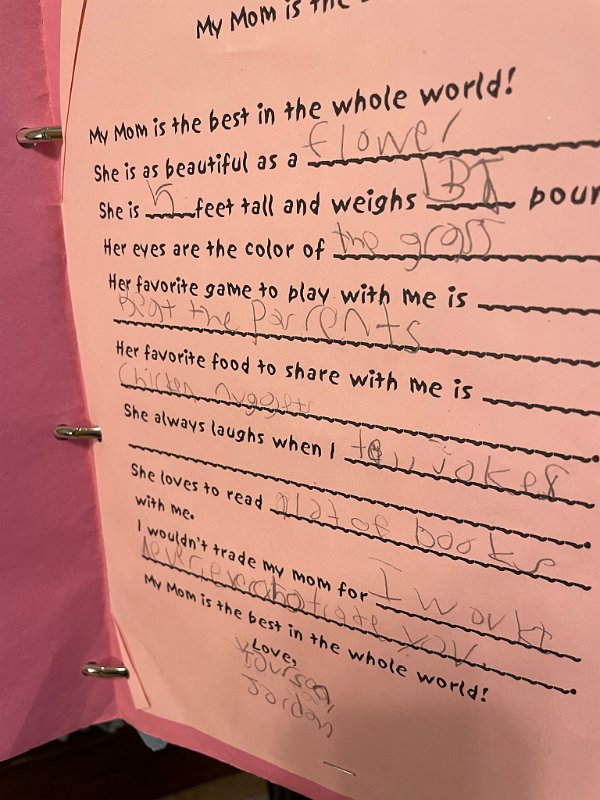 My Mom is the
My Mom is the best in the whole world!
She is as beautiful as a flower
She is 5 feet tall and weighs pour
Her eyes are the color of the grass
Her favorite game to play with me is
Beat the Parrents
Her favorite food to share with me is
Chicken nuggets
She always laughs when I tell jokes
She loves to read alat of books
with me.
I wouldn't trade my mom for I woukt
trate you
My Mom is the best in the whole world!
Love,
Jordan